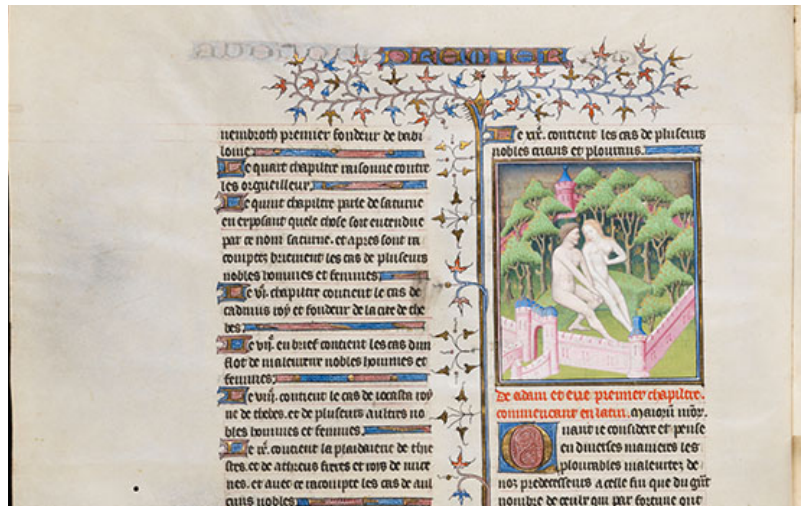 PREMIER
nembroth premier fondeur de babi
lonie.
Le quart chapitre raisonne contre
les orgueilleux.
Le quint chapitre parle de saturne
en exposant quele chose soit entendue
par ce nom saturne. et apres sont ra
comptez briefment les cas de pluseurs
nobles hommes et femmes.
Le vi. chapitre contient le cas de
cadmus roy et fondeur de la cite de the
bes.
Le vii. en brief contient les cas dun
flot de maleureux nobles hommes et
femmes.
Le viii. contient le cas de iocasta roy
ne de thebes. et de pluseurs aultres no
bles hommes et femmes.
Le ix. contient la plaidoierie de thie
stes. et de athreus freres et roys de mice
nes. et avec ce racompte les cas de aul
cuns nobles
Le contient les cas de pluseurs
nobles crians et plourans.
De adam et eve premier chapitre.
commencant en latin. Maiorum
Quant ie considere et pense
en diverses manieres les
plourables maleurtez de
noz predecesseurs a celle fin que du grant
nombre de ceulx qui par fortune ont